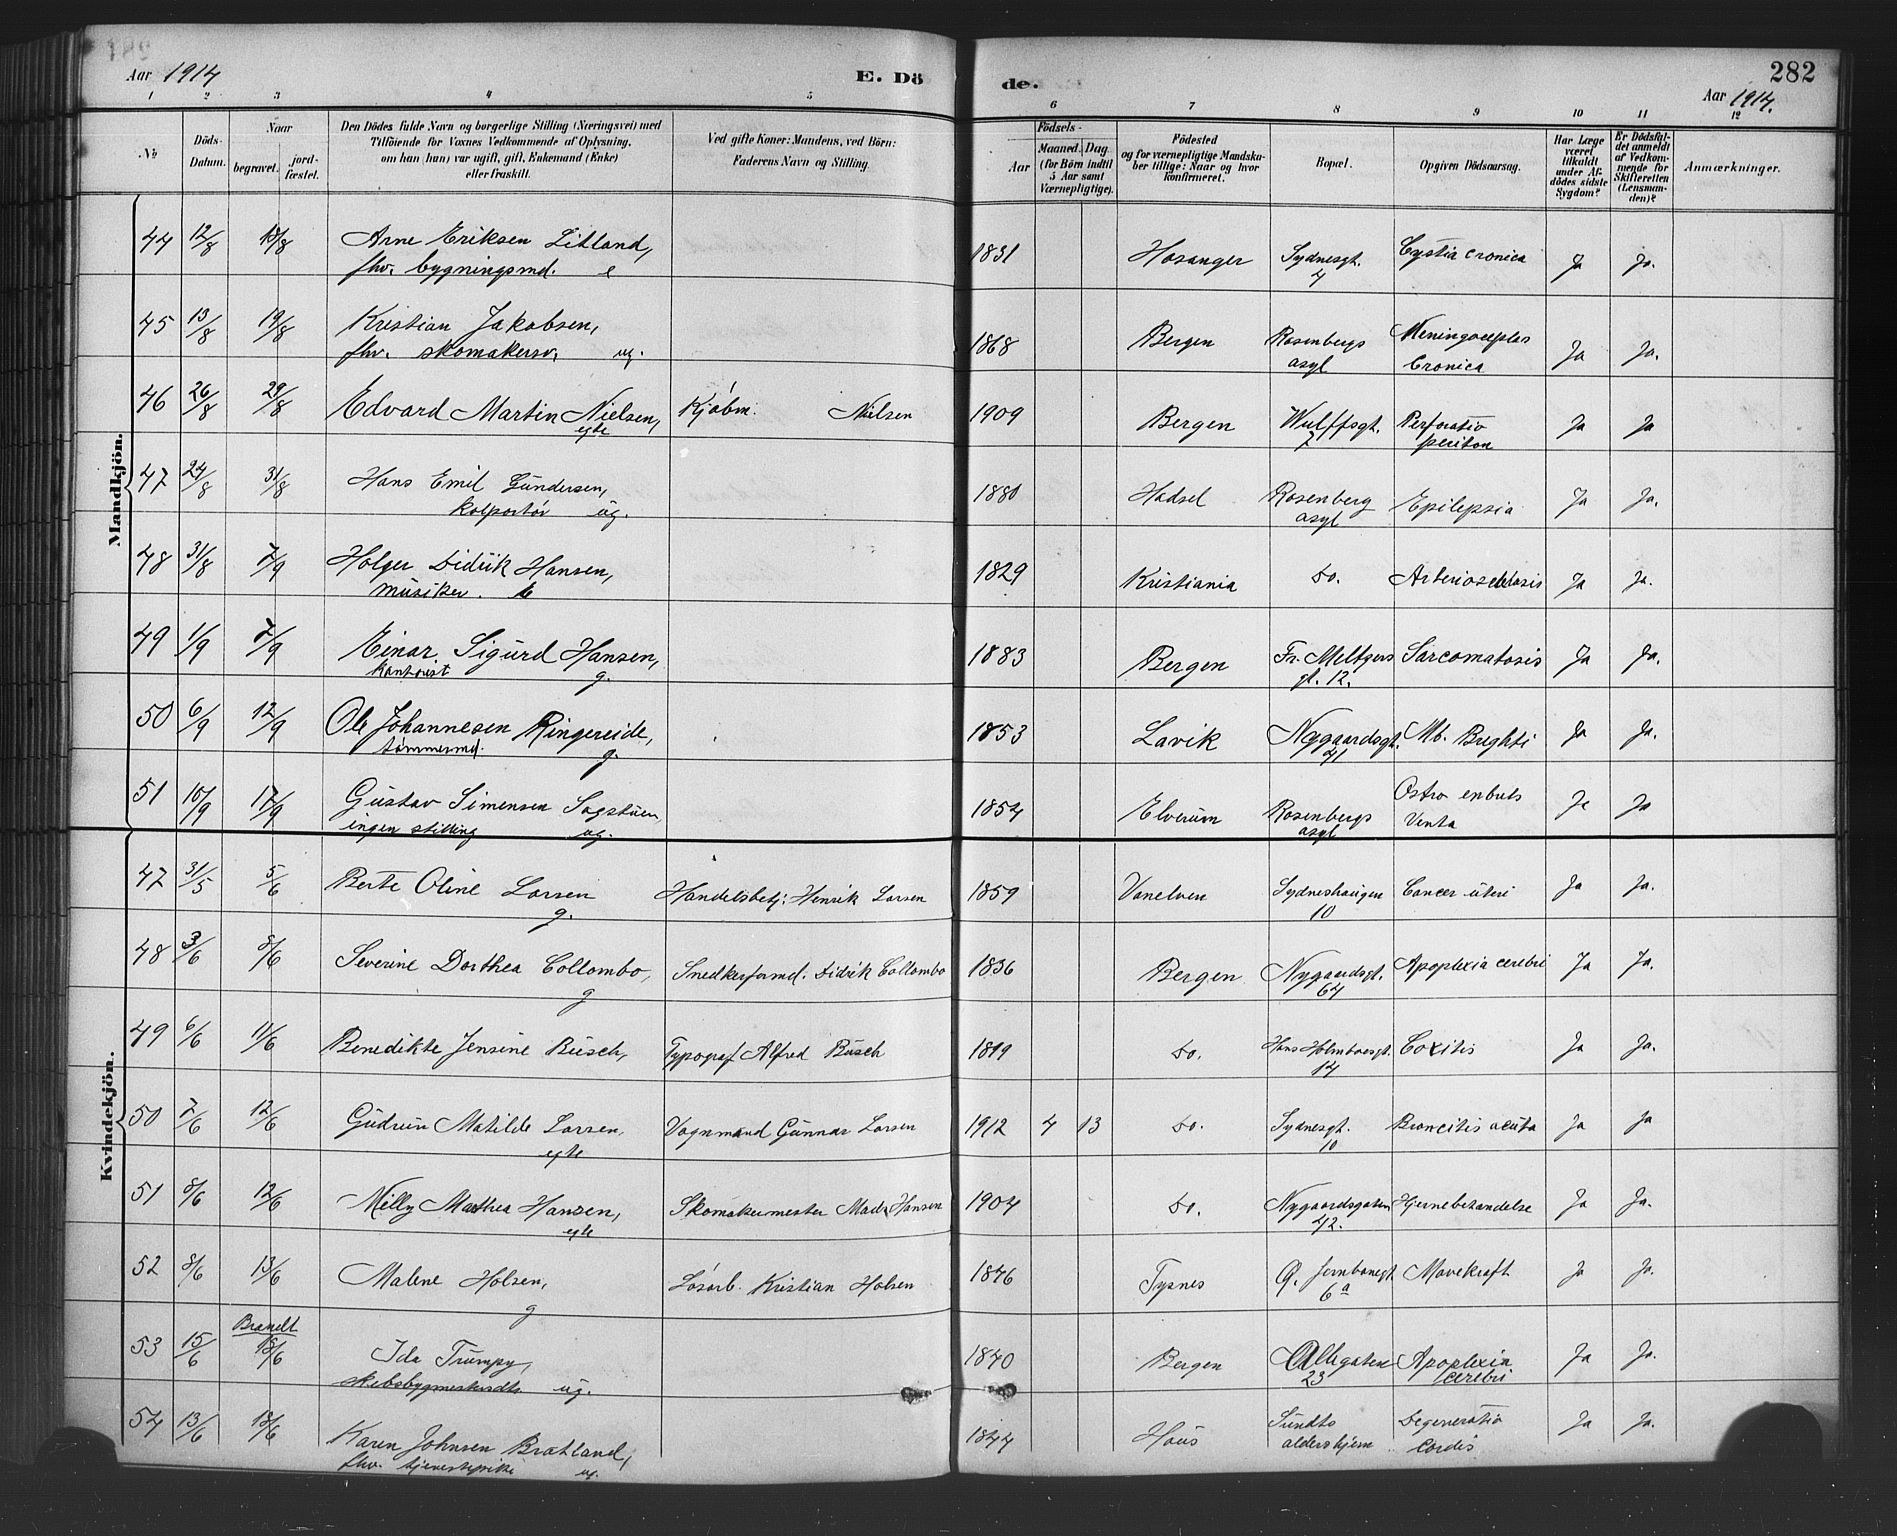 Aar 1914
E. Dö
de.
282
Aar 1914.
1 2 3 4 5 6 7 8 9 10 11 12
No
Döds-Datum.
Naar
begravet.
jord-fæstet.
Den Dödes fulde Navn og borgerlige Stilling (Næringsvei) med
Tilföiende for Voxnes Vedkommende af Oplysning,
om han (hun) var ugift, gift, Enkemand (Enke)
eller fraskilt.
Ved gifte Koner: Mandens, ved Börn:
Faderens Navn og Stilling.
Födsels-
Aar
Maaned. Dag
(for Börn indtil
5 Aar samt
Værnepligtige).
Födested
og for værnepligtige Mandska-
ber tillige: Naar og hvor
konfirmeret.
Bopæl.
Opgiven Dödsaarsag.
Har Læge
været
tilkaldt
under Af-
dödes sidste
Sygdom?
Er Dödsfal-
det anmeldt
af Vedkom-
mende for
Skifteretten
(Lensman-
den)?
Anmærkninger.
Mandkjön.
44 12/8 18/8 Arne Eriksen Litland, 1831 Hosanger Sydnesgt. Cystia cronica Ja Ja.
fhv. bygningsmd. e 4
45 13/8 19/8 Kristian Jakobsen, 1868 Bergen Rosenbergs Ja Ja.
fhv. skomakersv. ug. asyl Cronica
46 26/8 29/8 Edvard Martin Nielsen, Kjøbm. Nielsen 1909 Bergen Wulffsgt. Perforatio Ja Ja
egte 7 periton
47 24/8 31/8 Hans Emil Gundersen, 1880 Hadsel Rosenberg Epilepsia Ja Ja.
kolportør ug. asyl
48 31/8 7/9 Holger Didrik Hansen, 1829 Kristiania Do. Ja Ja.
musiker. e
49 1/9 7/9 Einar Sigurd Hansen, 1883 Bergen Fr. Meltzers Sarcomatosis Ja Ja.
kontorist g. gt. 12.
50 6/9 12/9 Ole Johannesen Ringereide, 1853 Lavik Nygaardsgt. Mb. Brighti Ja Ja.
tømmermd. g. 41
51 10/9 17/9 Gustav Simensen Sagstuen 1854 Elverum Rosenbergs Ja Ja
ingen stilling ug. asyl
Kvindekjön.
47 31/5 5/6 Berte Oline Larsen Handelsbetj. Henrik Larsen 1859 Vanelven Sydneshaugen Cancer uteri Ja Ja.
g. 10
48 3/6 8/6 Severine Dorthea Collombo, Snedkerformd. Didrik Collombo 1836 Bergen Nygaardsgt. Apoplexia cerebri Ja Ja.
g 64
49 6/6 11/6 Benedikte Jensine Busch, Typograf Alfred Busch Do. Hans Holmboesgt. Coxitis Ja Ja.
14
50 7/6 12/6 Gudrun Matilde Larsen, Vognmand Gunnar Larsen 1912 4 13 Do. Sydnesgt. Broncitis acuta Ja Ja
egte 10
51 8/6 12/6 Nelly Marthea Hansen, Skomakermester Mads Hansen 1904 Do. Nygaardsgaten Hjernebetændelse Ja Ja.
egte 42.
52 8/6 13/6 Malene Holsen, Løsarb. Kristian Holsen 1876 Tysnes Jernbanegt. Mavekræft Ja Ja.
g 6 a
53 15/6 Brændt 18/6 Ida Trumpy, 1840 Bergen Allegaten Apoplexia Ja Ja.
skibsbygmestersdtr. ug. 23 cerebri
54 13/6 18/6 Karen Johnsen Bratland, 1844 Haus Sundts Degeneratio Ja Ja.
fhv. tjenestepike ug. aldershjem Cordis